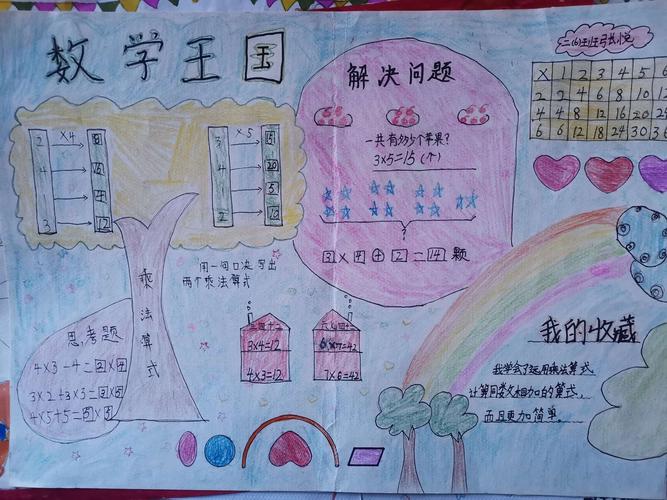 数学王国
解决问题
二(6)班
X 1 2 3 4 5
2 2 4 6 8 10
4 4 8 12 16 20
6 6 12 18 24 30
2 ×4 8
4 16
4
3 12
3 ×5 15
4 20
5
2 10
一共有多少个苹果?
3×5=15(个)
?
3×4+2=14颗
用一句口决写出
两个乘法算式
乘法算式
思考题
4×3-4=2×4
3×2+3×3=
4×5+5=
三四十二
3×4=12
4×3=12
六七四十二
6×7=42
7×6=42
我的收藏
我学会了运用乘法算式
计算同数相加的算式,
而且更加简单。